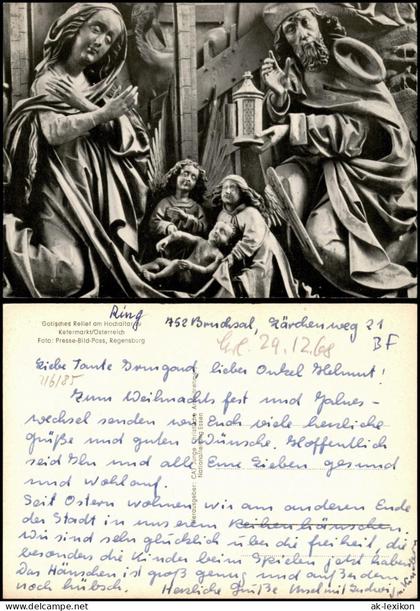 Ring
752 Bruchsal, Lärchenweg 21
BF
Gotisches Relief am Hochaltar zu
Kefermarkt/Österreich
Foto: Presse-Bild-Poss, Regensburg
29.12.68
Liebe Tante Irmgard, lieber Onkel Helmut!
716/85
Zum Weihnachtsfest und Jahres-
wechsel senden wir Euch viele herzliche
Grüße und guten Wünsche. Hoffentlich
seid Ihr und alle Eure Lieben gesund
und wohlauf.
Seit Ostern wohnen wir am anderen Ende
der Stadt in unserem Reihenhäuschen.
Wir sind sehr glücklich über die Freiheit, die
besonders die Kinder beim Spielen jetzt haben.
Das Häuschen ist groß genug und außerdem
noch hübsch. Herzliche Grüße Ludwig
© ak-lexikon.com